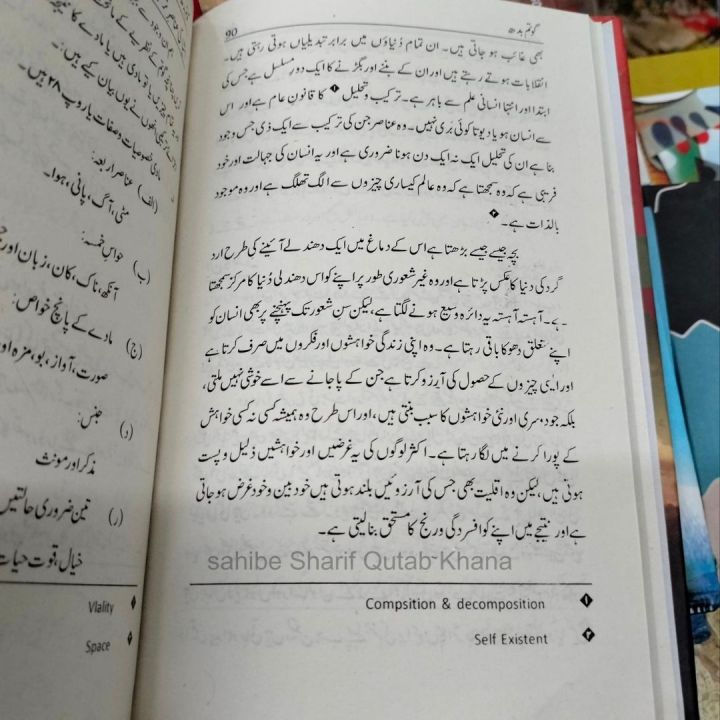 گوتم بدھ
90
بھی غائب ہو جاتی ہیں۔ ان تمام دُنیاؤں میں برابر تبدیلیاں ہوتی رہتی ہیں۔
انقلابات ہوتے رہتے ہیں اور ان کے بننے اور بگڑنے کا ایک دورِ مسلسل ہے جس کی
ابتدا اور انتہا انسانی علم سے باہر ہے۔ ترکیب و تحلیل ۱ کا قانون عام ہے اور اس
سے انسان ہو یا دیوتا کوئی بَری نہیں۔ وہ عناصر جن کی ترکیب سے ایک ذی حس وجود
بنا ہے ان کی تحلیل ایک نہ ایک دن ہونا ضروری ہے اور یہ انسان کی جہالت اور خود
فریبی ہے کہ وہ سمجھتا ہے کہ وہ عالم کی ساری چیزوں سے الگ تھلگ ہے اور وہ موجود
بالذات ہے۔ ۲
بچہ جیسے جیسے بڑھتا ہے اس کے دماغ میں ایک دھندلے آئینے کی طرح ارد
گرد کی دنیا کا عکس پڑتا ہے اور وہ غیر شعوری طور پر اپنے کو اس دھندلی دُنیا کا مرکز سمجھتا
ہے۔ آہستہ آہستہ یہ دائرہ وسیع ہونے لگتا ہے، لیکن سن شعور تک پہنچنے پر بھی انسان کو
اپنے متعلق دھوکا باقی رہتا ہے۔ وہ اپنی زندگی خواہشوں اور فکروں میں صرف کرتا ہے
اور ایسی چیزوں کے حصول کی آرزو کرتا ہے جن کے پا جانے سے اسے خوشی نہیں ملتی،
بلکہ جو دوسری اور نئی خواہشوں کا سبب بنتی ہیں، اور اس طرح وہ ہمیشہ کسی نہ کسی خواہش
کے پورا کرنے میں لگا رہتا ہے۔ اکثر لوگوں کی یہ غرضیں اور خواہشیں ذلیل و پست
ہوتی ہیں، لیکن وہ اقلیت بھی جس کی آرزوئیں بلند ہوتی ہیں خود بین و خود غرض ہو جاتی
ہے اور نتیجے میں اپنے کو افسردگی و رنج کا مستحق بنا لیتی ہے۔
sahibe Sharif Qutab Khana
۱ Compsition & decomposition
۲ Self Existent
مادی خصوصیات و صفات یا روپ ۲۸ ہیں۔
(الف) عناصر اربعہ:
مٹی، آگ، پانی، ہوا۔
(ب) حواسِ خمسہ:
آنکھ، ناک، کان، زبان اور
(ج) مادے کے پانچ خواص:
صورت، آواز، بو، مزہ اور
(د) جنس:
مذکر اور مونث
(ر) تین ضروری حالتیں
خیال، قوت حیات
Vlality
Space